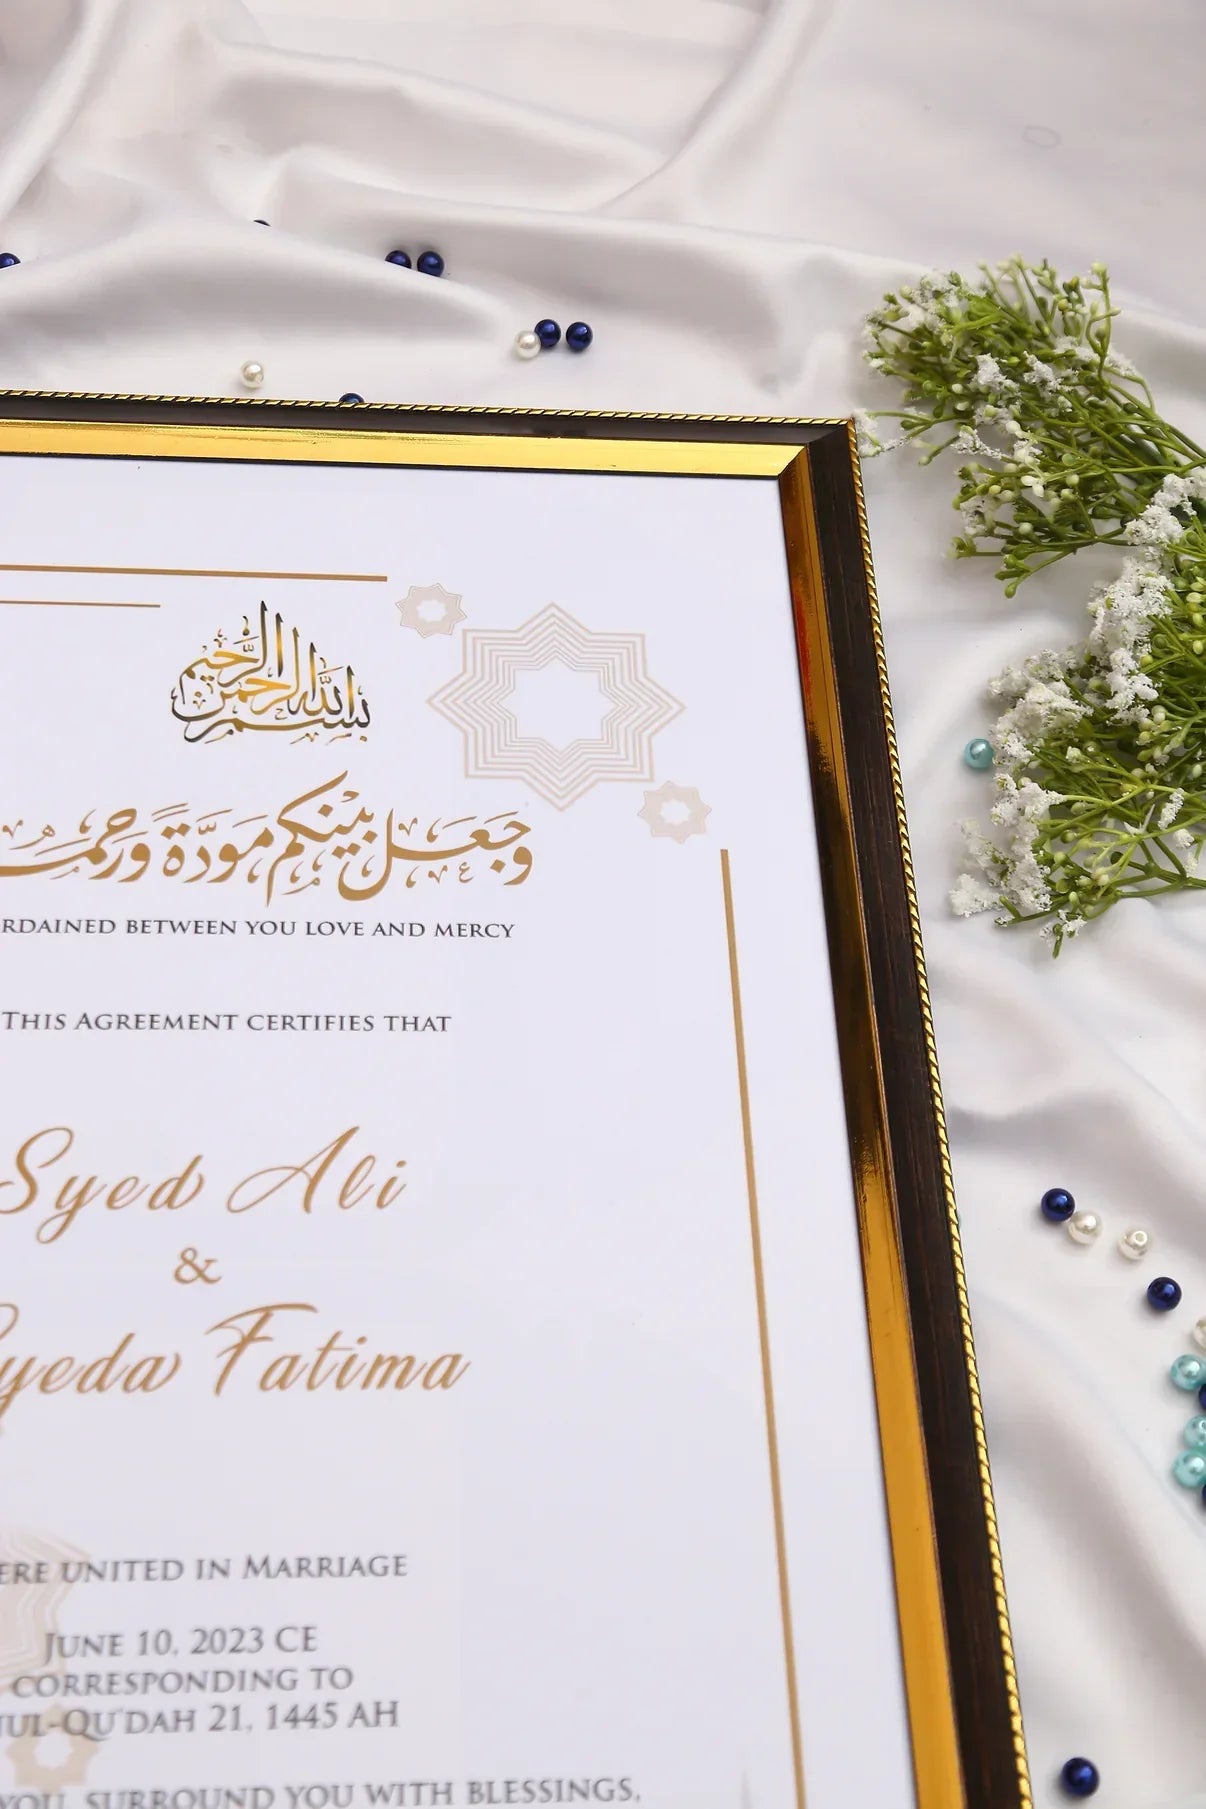 بسم الله الرحمن الرحيم
وَجَعَلَ بَيْنَكُم مَوَدَّةً وَرَحْمَـ
RDAINED BETWEEN YOU LOVE AND MERCY
THIS AGREEMENT CERTIFIES THAT
Syed Ali
&
yeda Fatima
ERE UNITED IN MARRIAGE
JUNE 10, 2023 CE
CORRESPONDING TO
UL-QU'DAH 21, 1445 AH
YOU, SURROUND YOU WITH BLESSINGS,